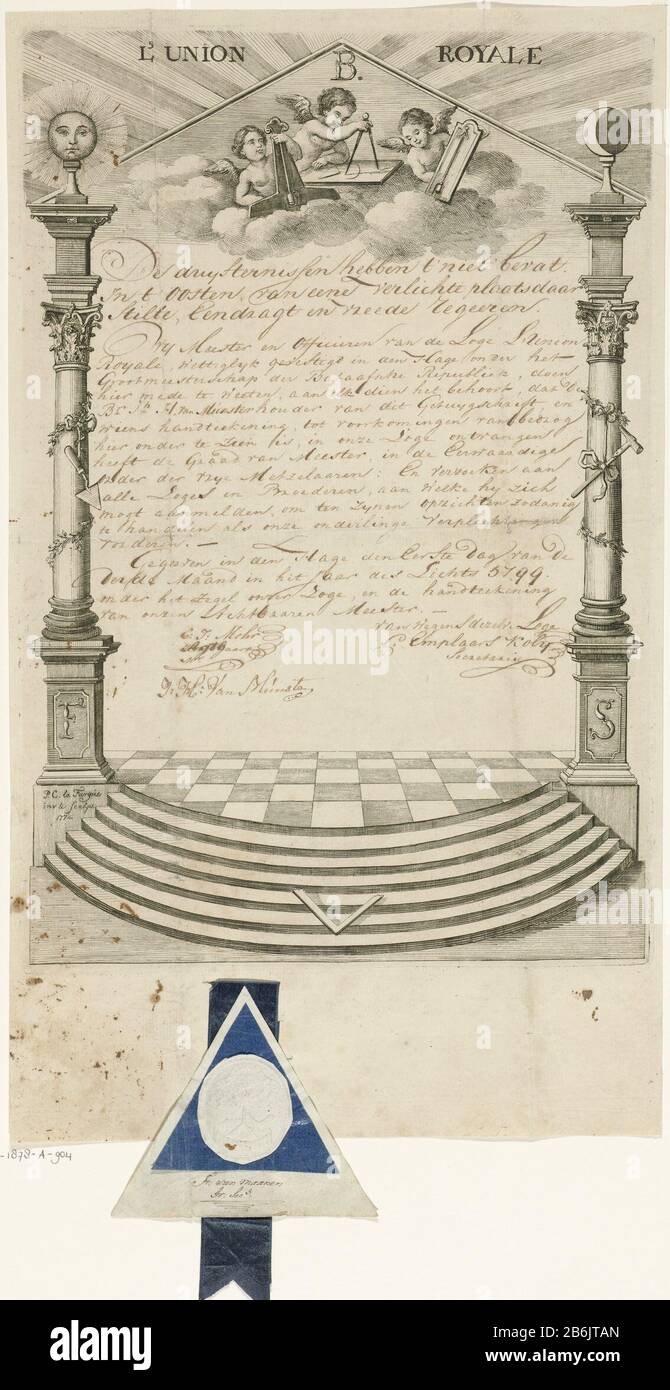 L'UNION B. ROYALE
De duysternissen hebben 't niet bevat.
In 't Oosten, van eene verlichte plaats daar
Stille, Eendragt en vreede regeeren.
Wy Meester en Officieren van de Loge L'Union
Royale, Wettiglyk gevestigt in den Hage onder het
Grootmeesterschap der Bataafsche Republiek, doen
hier mede te Weeten, aan alle dien het behoort, dat de
Br. A. van Munster houder van dit Getuygschrift, en
wiens handteekening, tot voorkomingen van bedrog
hier onder te Zien is, in onze Loge ontvangen
heeft de Graad van Meester, in de Eerwaardige
order der vrye Metzelaaren: En verzoeken aan
alle Loges en Broederen, aan welke hy zich
mogt aanmelden, om ten zynen opzichten zodanig
te handelen als onze onderlinge verplichtingen
vorderen. —
Gegeven in den Hage den Eerste Dag van De
derde Maand in het Jaar des Lichts 5799.
onder het Zegel onser Loge, en de handteekening
van onzen Achtbaaren Meester. —
van wegens dezelve Loge
C. F. Mohr
Secretaris
H: Van Munster
F S
P.C. la Fargue
inv. & sculps.
177
-1878-A-904
Fr. van Maanen
alamy
Image ID: 2B6JTAN
www.alamy.com